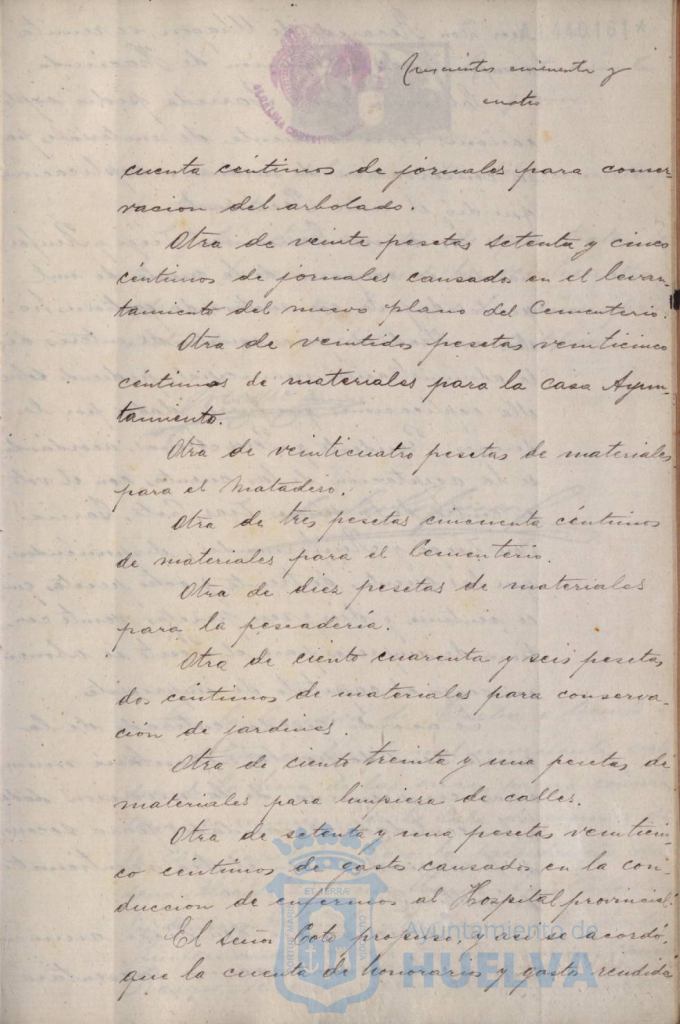 Trescientos cincuenta y
cuatro
cuenta céntimos de jornales para conser-
vacion del arbolado.
Otra de veinte pesetas setenta y cinco
céntimos de jornales causados en el levan-
tamiento del nuevo plano del Cementerio.
Otra de veintidos pesetas veinticinco
céntimos de materiales para la casa Ayun-
tamiento.
Otra de veinticuatro pesetas de materiales
para el Matadero.
Otra de tres pesetas cincuenta céntimos
de materiales para el Cementerio.
Otra de diez pesetas de materiales
para la pescadería.
Otra de ciento cuarenta y seis pesetas
dos céntimos de materiales para conserva-
ción de jardines.
Otra de ciento treinta y una pesetas de
materiales para limpieza de calles.
Otra de setenta y una pesetas veinticin-
co céntimos de gastos causados en la con-
duccion de enfermos al Hospital provincial.
El señor Coto propuso, y así se acordó,
que la cuenta de honorarios y gastos rendida
Ayuntamiento de
HUELVA